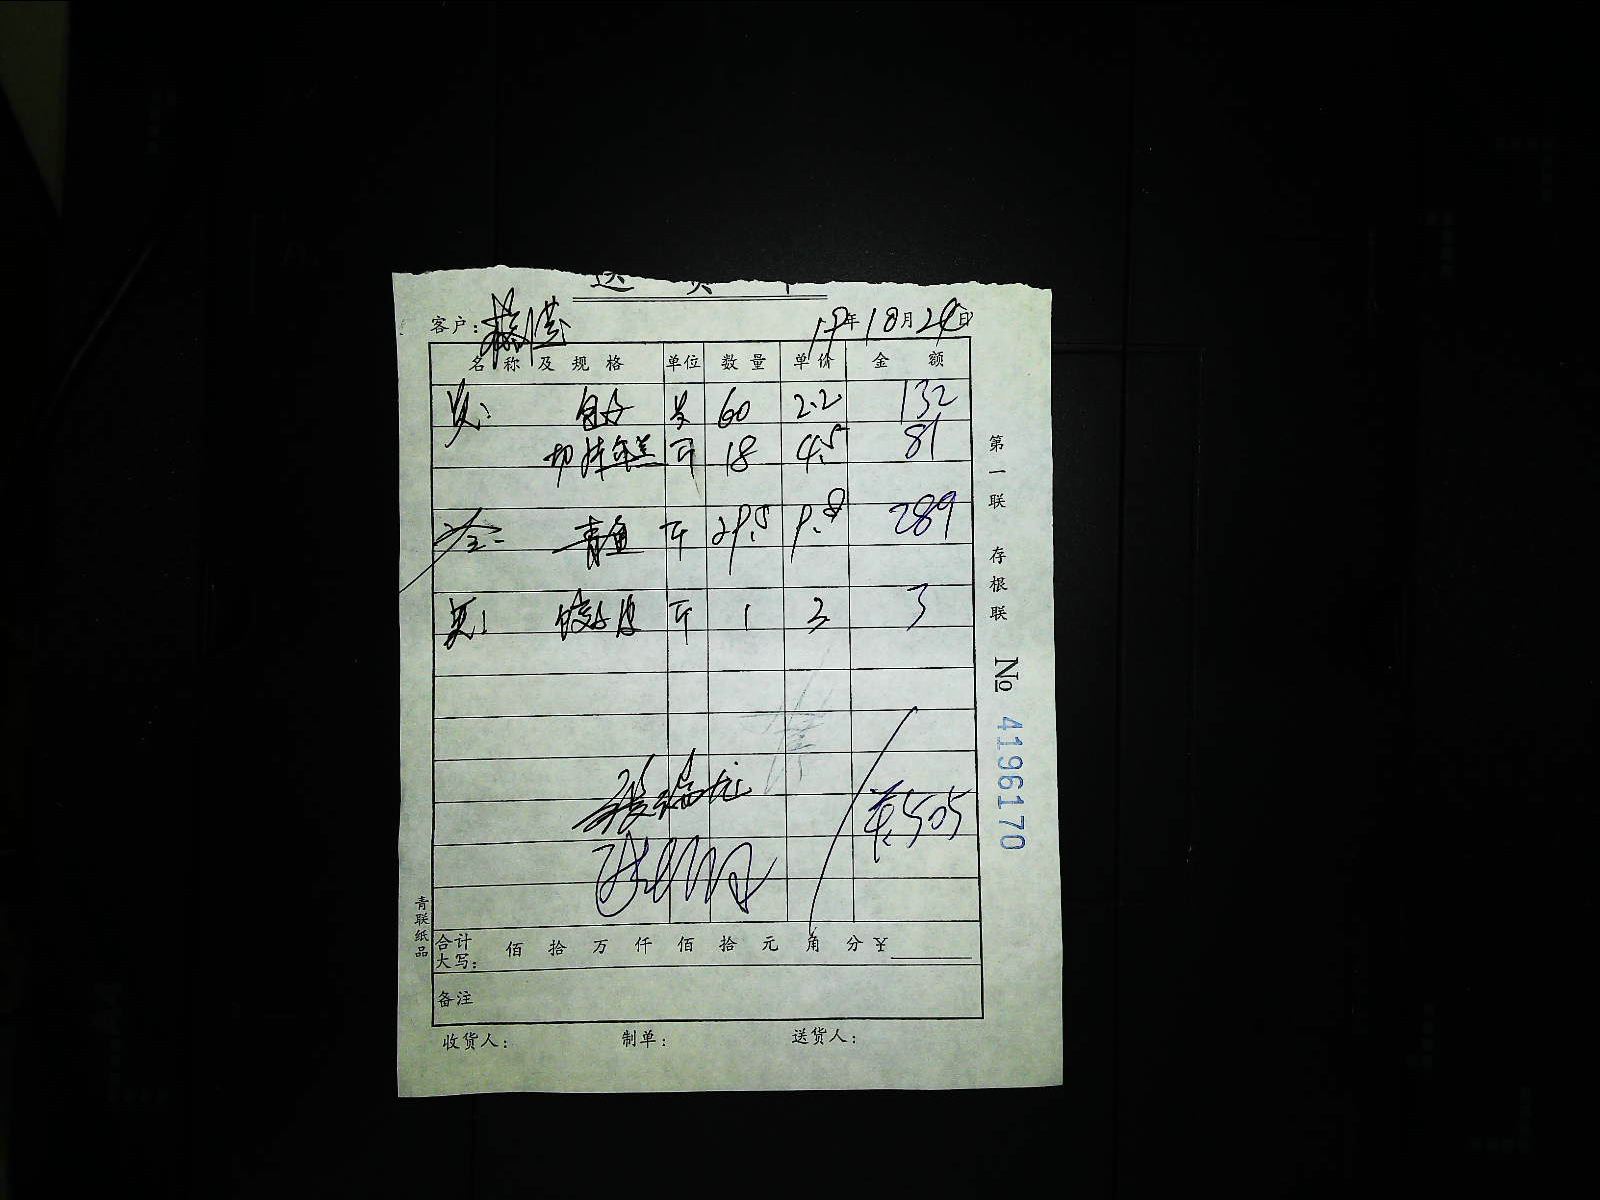 送 货 单
客户:
19年10月24日
名 称 及 规 格 单位 数 量 单 价 金 额
60 2.2 132
切片年糕 斤 18 4.5 81
青鱼 斤 29.5 9.8 289
饺子皮 斤 1 3 3
505
合计大写: 佰 拾 万 仟 佰 拾 元 角 分 ¥
备注
收货人: 制单: 送货人:
第一联 存根联
№ 4196170
青联纸品